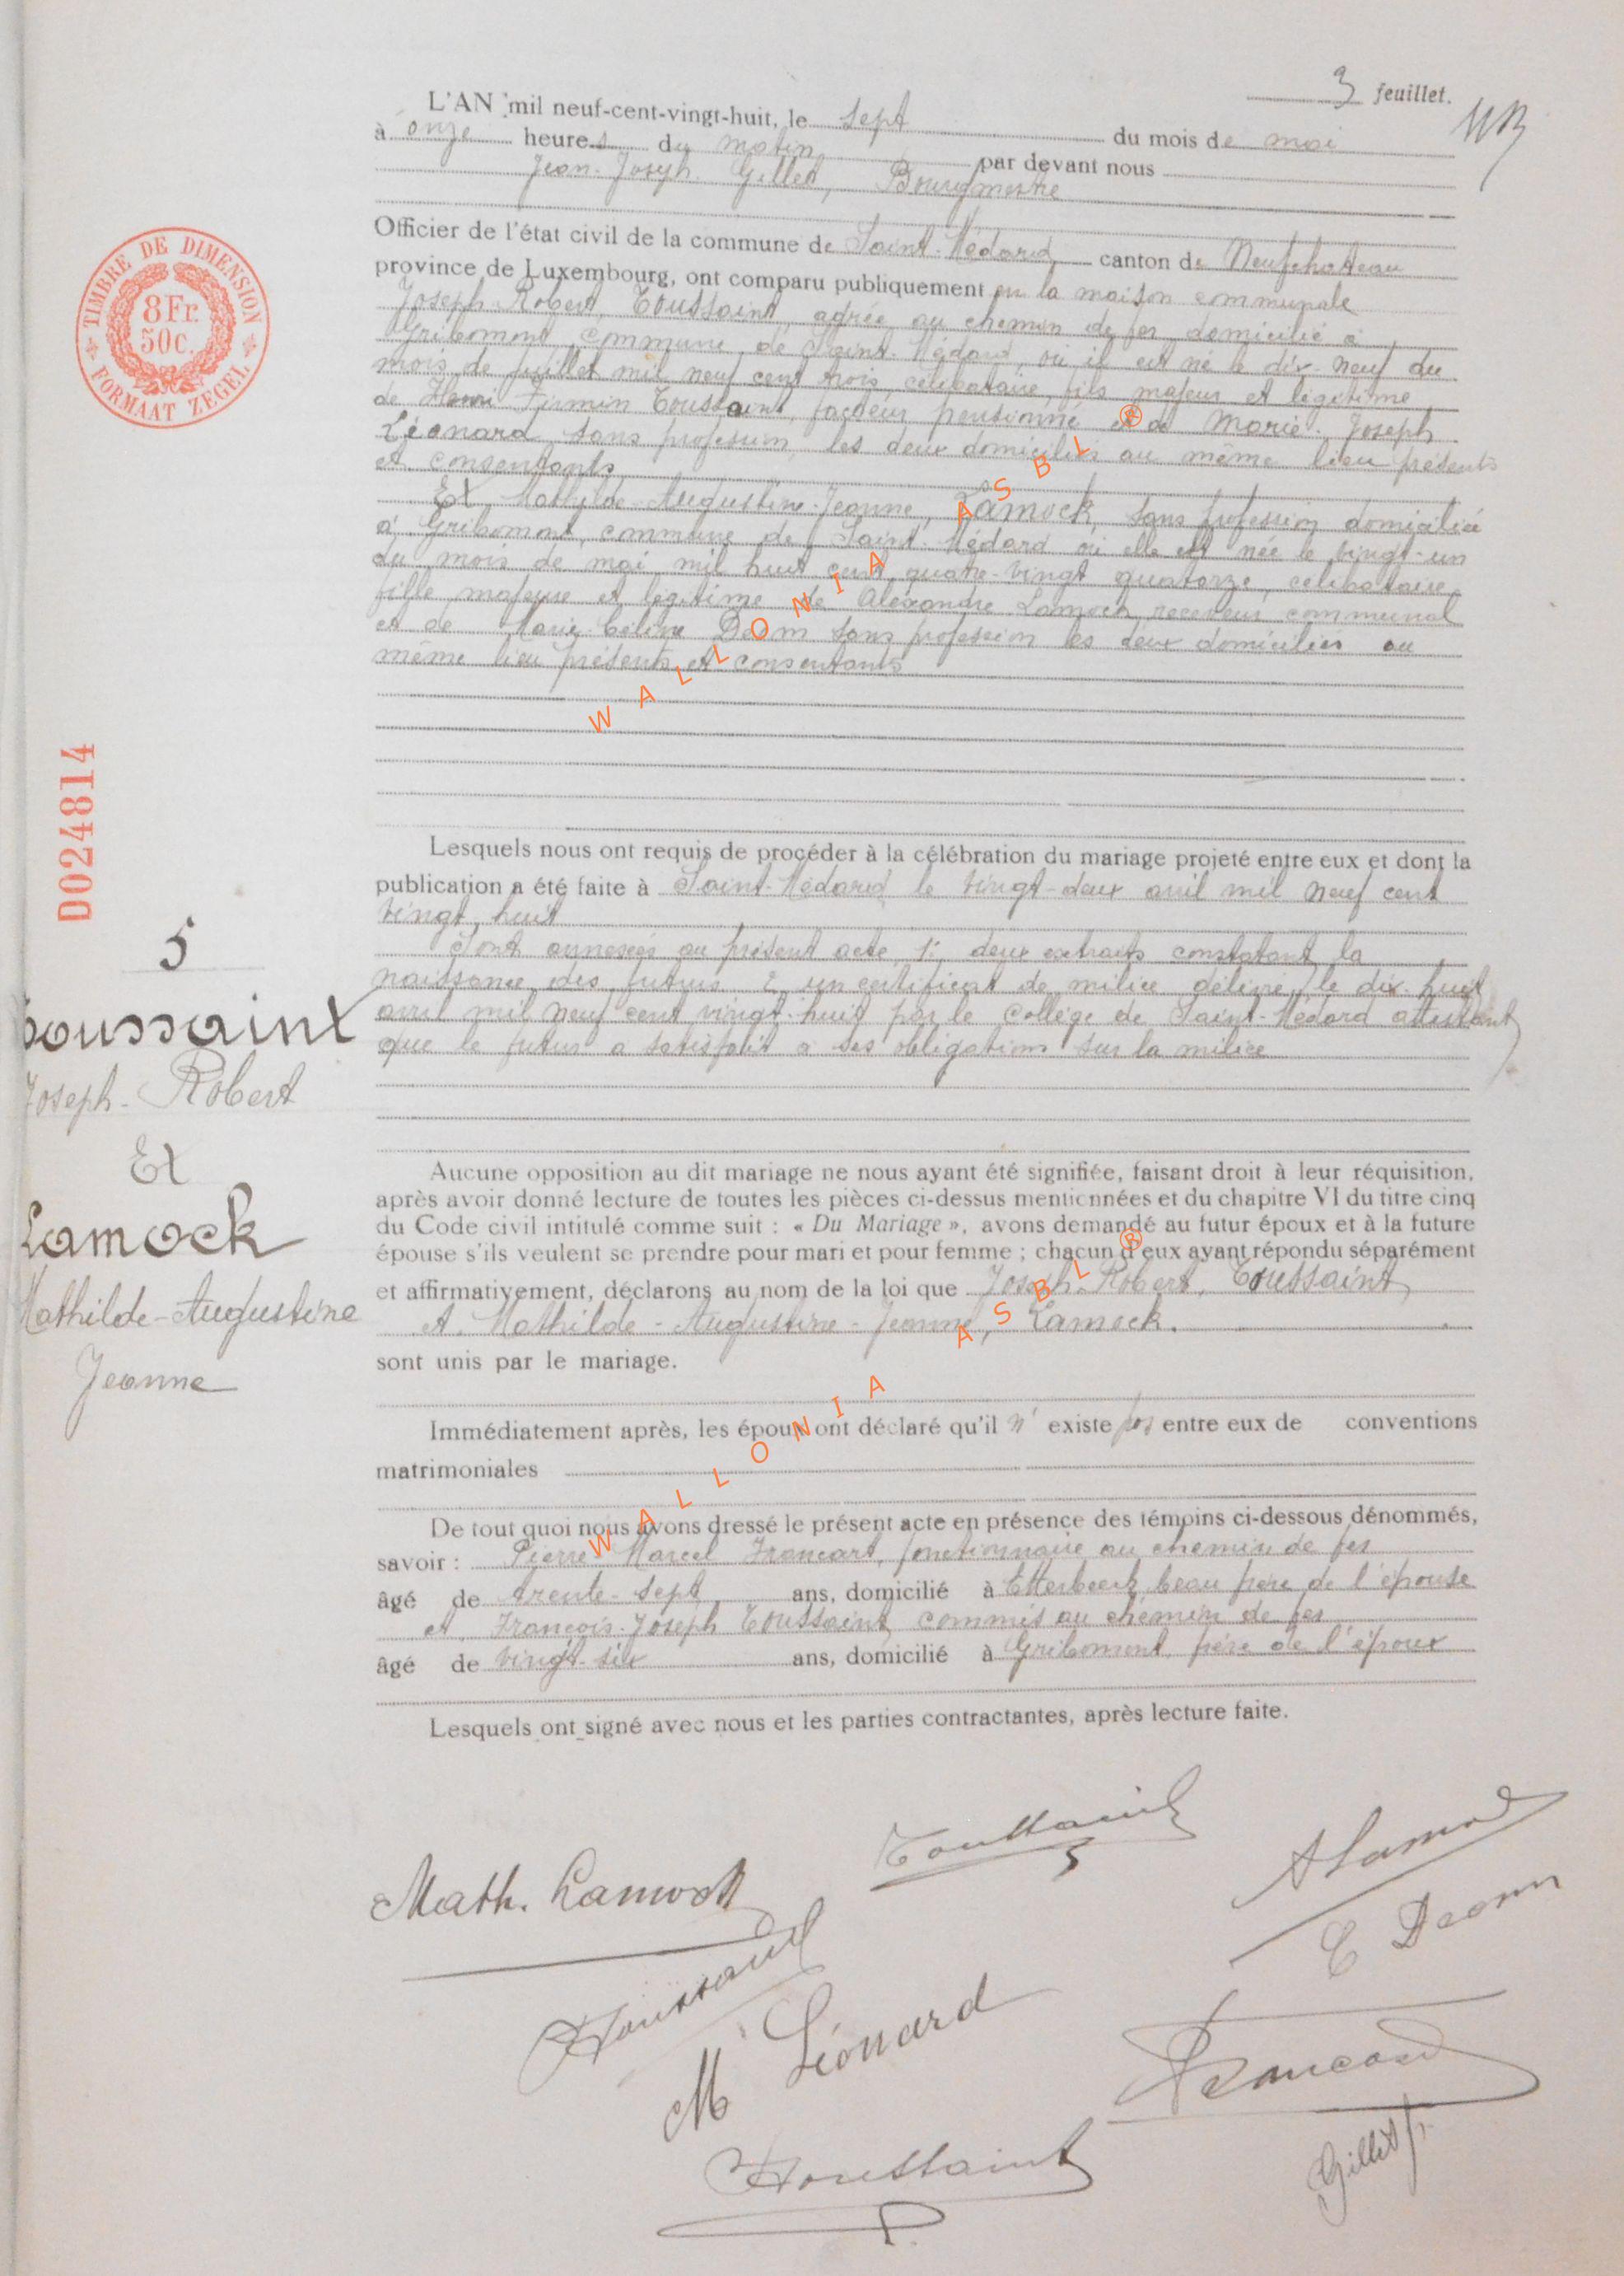 3 feuillet.
L'AN mil neuf-cent-vingt-huit, le sept du mois de mai
à onze heures du matin par devant nous
Jean-Joseph Gillet, Bourgmestre
Officier de l'état civil de la commune de Saint-Médard canton de Neufchateau
province de Luxembourg, ont comparu publiquement en la maison communale
Joseph-Robert, Toussaint, agréé au chemin de fer domicilié à
Gribomont, commune de Saint-Médard où il est né le dix-neuf du
mois de juillet mil neuf cent trois, célibataire, fils majeur et légitime
de Henri Firmin Toussaint, facteur pensionné et de Marie-Joseph
Léonard, sans profession, les deux domiciliés au même lieu présents
et consentants
Et Mathylde-Augustine-Jeanne, Lamock, sans profession domiciliée
à Gribomont, commune de Saint-Médard où elle est née le vingt-un
du mois de mai mil huit cent quatre-vingt quatorze, célibataire,
fille majeure et légitime de Alexandre Lamock, receveur communal
et de Marie-Céline Deom sans profession les deux domiciliés au
même lieu présents et consentants
WALLONIA ASBL ®
TIMBRE DE DIMENSION
8Fr.
50c.
FORMAAT ZEGEL
D024814
Lesquels nous ont requis de procéder à la célébration du mariage projeté entre eux et dont la
publication a été faite à Saint-Médard le vingt-deux avril mil neuf cent
vingt huit
Sont annexés au présent acte, 1: deux extraits constatant la
naissance des futurs 2 un certificat de milice délivré le dix-huit
avril mil neuf cent vingt-huit par le Collège de Saint-Médard attestant
que le futur a satisfait à ses obligations sur la milice
5
Toussaint
Joseph-Robert
Et
Lamock
Mathilde-Augustine
Jeanne
Aucune opposition au dit mariage ne nous ayant été signifiée, faisant droit à leur réquisition,
après avoir donné lecture de toutes les pièces ci-dessus mentionnées et du chapitre VI du titre cinq
du Code civil intitulé comme suit : « Du Mariage », avons demandé au futur époux et à la future
épouse s'ils veulent se prendre pour mari et pour femme ; chacun d'eux ayant répondu séparément
et affirmativement, déclarons au nom de la loi que Joseph-Robert, Toussaint
et Mathilde-Augustine-Jeanne, Lamock.
sont unis par le mariage.
Immédiatement après, les époux ont déclaré qu'il n'existe pas entre eux de conventions
matrimoniales
WALLONIA ASBL ®
De tout quoi nous avons dressé le présent acte en présence des témoins ci-dessous dénommés,
savoir : Pierre-Marcel Francart, fonctionnaire au chemin de fer
âgé de trente-sept ans, domicilié à Etterbeek, beau père de l'épouse
et François-Joseph Toussaint, commis au chemin de fer
âgé de vingt-six ans, domicilié à Gribomont, père de l'époux
Lesquels ont signé avec nous et les parties contractantes, après lecture faite.
Toussaint
A Lamock
Math. Lamock
C Deom
Toussaint
M Léonard
Francart
Toussaint
Gillet